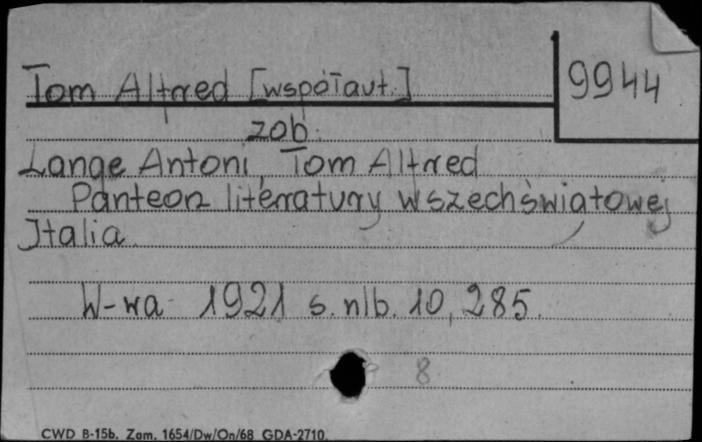 Tom Alfred [współaut.] 9944
zob.
Lange Antoni, Tom Alfred
Panteon literatury wszechświatowej
Italia.
W-wa 1921 s. nlb. 10, 285.
8
CWD B-15b. Zam. 1654/Dw/On/68 GDA-2710.